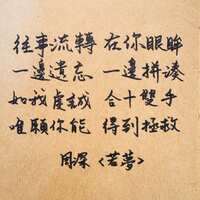 往事流轉 在你眼眸
一邊遺忘 一邊拼凑
如我虔誠 合十雙手
唯願你能 得到拯救
周深 〈若夢〉